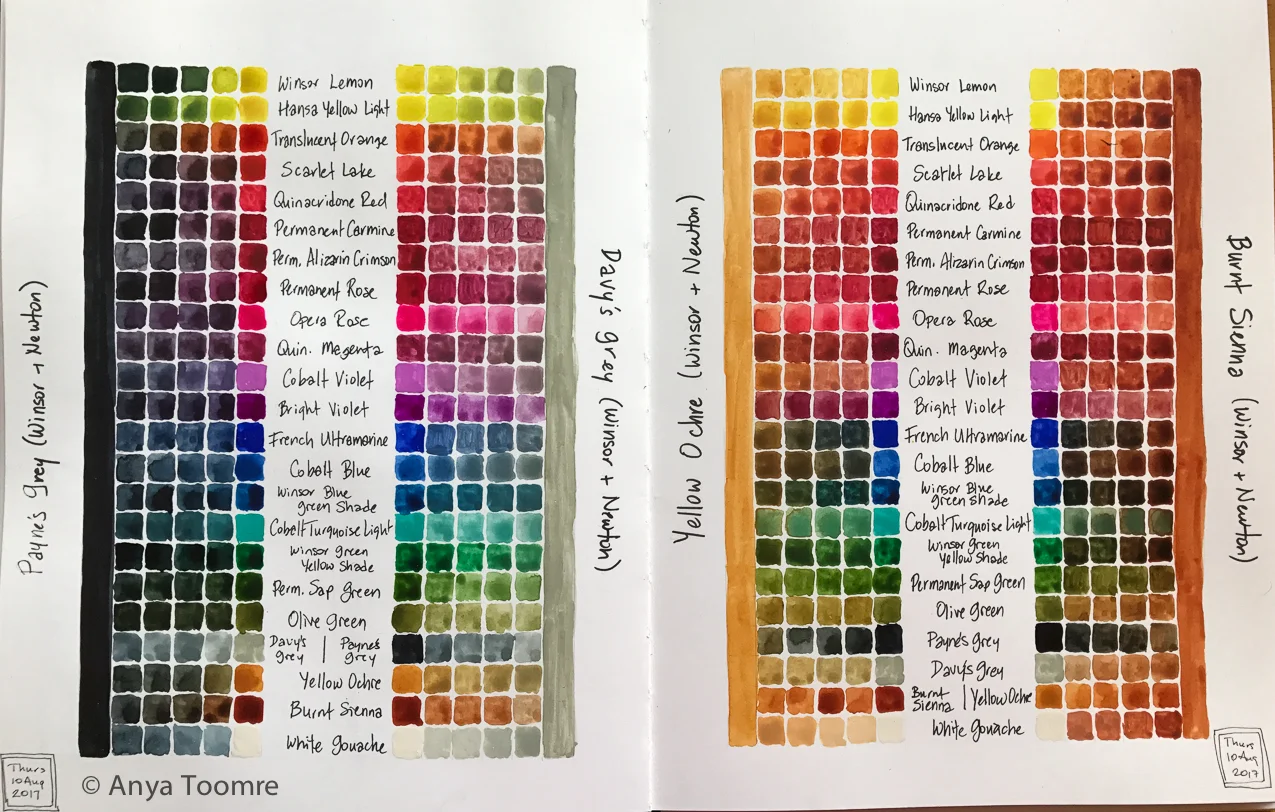 Payne's grey (Winsor + Newton)
Winsor Lemon
Hansa Yellow Light
Translucent Orange
Scarlet Lake
Quinacridone Red
Permanent Carmine
Perm. Alizarin Crimson
Permanent Rose
Opera Rose
Quin. Magenta
Cobalt Violet
Bright Violet
French Ultramarine
Cobalt Blue
Winsor Blue
green Shade
Cobalt Turquoise Light
Winsor green
Yellow Shade
Perm. Sap Green
Olive Green
Davy's grey | Payne's grey
Yellow Ochre
Burnt Sienna
White Gouache
Davy's grey (Winsor + Newton)
Thurs
10 Aug
2017
© Anya Toomre
Yellow Ochre (Winsor + Newton)
Winsor Lemon
Hansa Yellow Light
Translucent Orange
Scarlet Lake
Quinacridone Red
Permanent Carmine
Perm. Alizarin Crimson
Permanent Rose
Opera Rose
Quin. Magenta
Cobalt Violet
Bright Violet
French Ultramarine
Cobalt Blue
Winsor Blue
green Shade
Cobalt Turquoise Light
Winsor green
Yellow Shade
Permanent Sap Green
Olive Green
Payne's grey
Davy's grey
Burnt Sienna | Yellow Ochre
White Gouache
Burnt Sienna (Winsor + Newton)
Thurs
10 Aug
2017